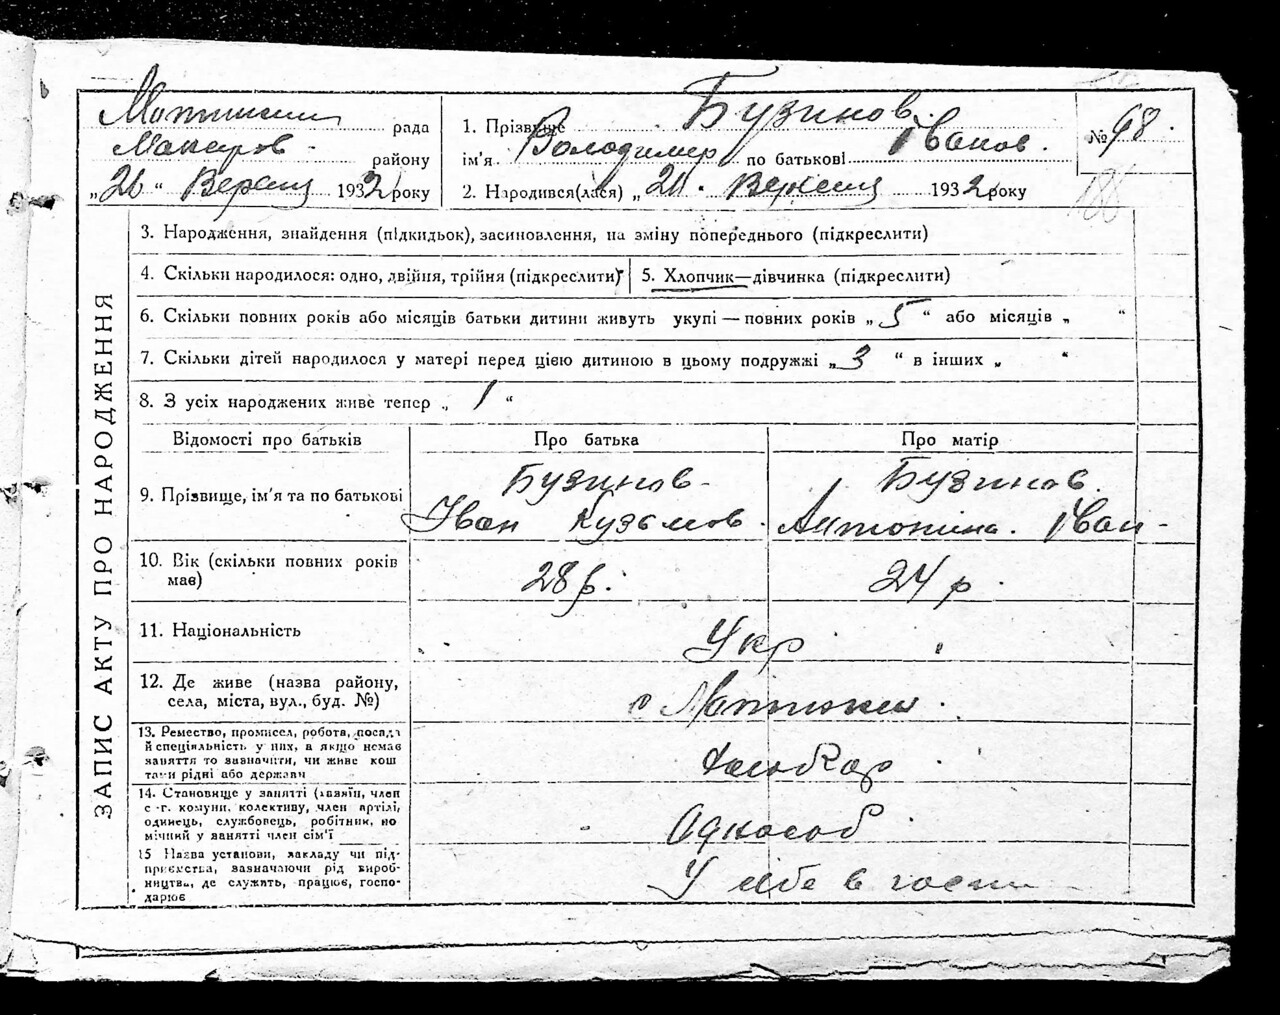 Мотижин рада
Макаров. району
„ 26 “ Вересня 1932 року
1. Прізвище Бузинов.
ім'я Володимир по батькові Іванов.
2. Народився(лася) „ Вересня 1932 року
№ 98
ЗАПИС АКТУ ПРО НАРОДЖЕННЯ
3. Народження, знайдення (підкидьок), засиновлення, на зміну попереднього (підкреслити)
4. Скільки народилося: одно, двійня, трійня (підкреслити)
5. Хлопчик—дівчинка (підкреслити)
6. Скільки повних років або місяців батьки дитини живуть укупі — повних років „ 5 “ або місяців „ “
7. Скільки дітей народилося у матері перед цією дитиною в цьому подружжі „ 3 “ в інших „ “
8. З усіх народжених живе тепер „ 1 “
Відомості про батьків Про батька Про матір
9. Прізвище, ім'я та по батькові
Бузинов
Іван Кузьмов.
Бузинов.
Антонина. Іван-
10. Вік (скільки повних років
має)
28 р. 24 р.
11. Національність Укр "
12. Де живе (назва району,
села, міста, вул., буд. №)
с Мотижин.
13. Ремество, промисел, робота, посада
й спеціяльність у них, а якщо немає
заняття то зазначити, чи живе кош
тами рідні або держави
хлібороб
14. Становище у занятті (хазяїн, член
с.-г. комуни, колективу, член артілі,
одинець, службовець, робітник, по
мічний у занятті член сім'ї
Одноособ
15 Назва установи, закладу чи під-
приємства, зазначаючи рід вироб-
ництва, де служить, працює, госпо-
дарює
У себе в госп